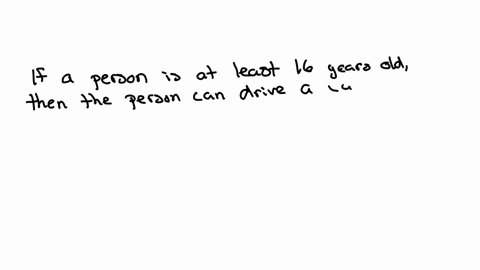 If a person is at least 16 years old,
then the person can drive a